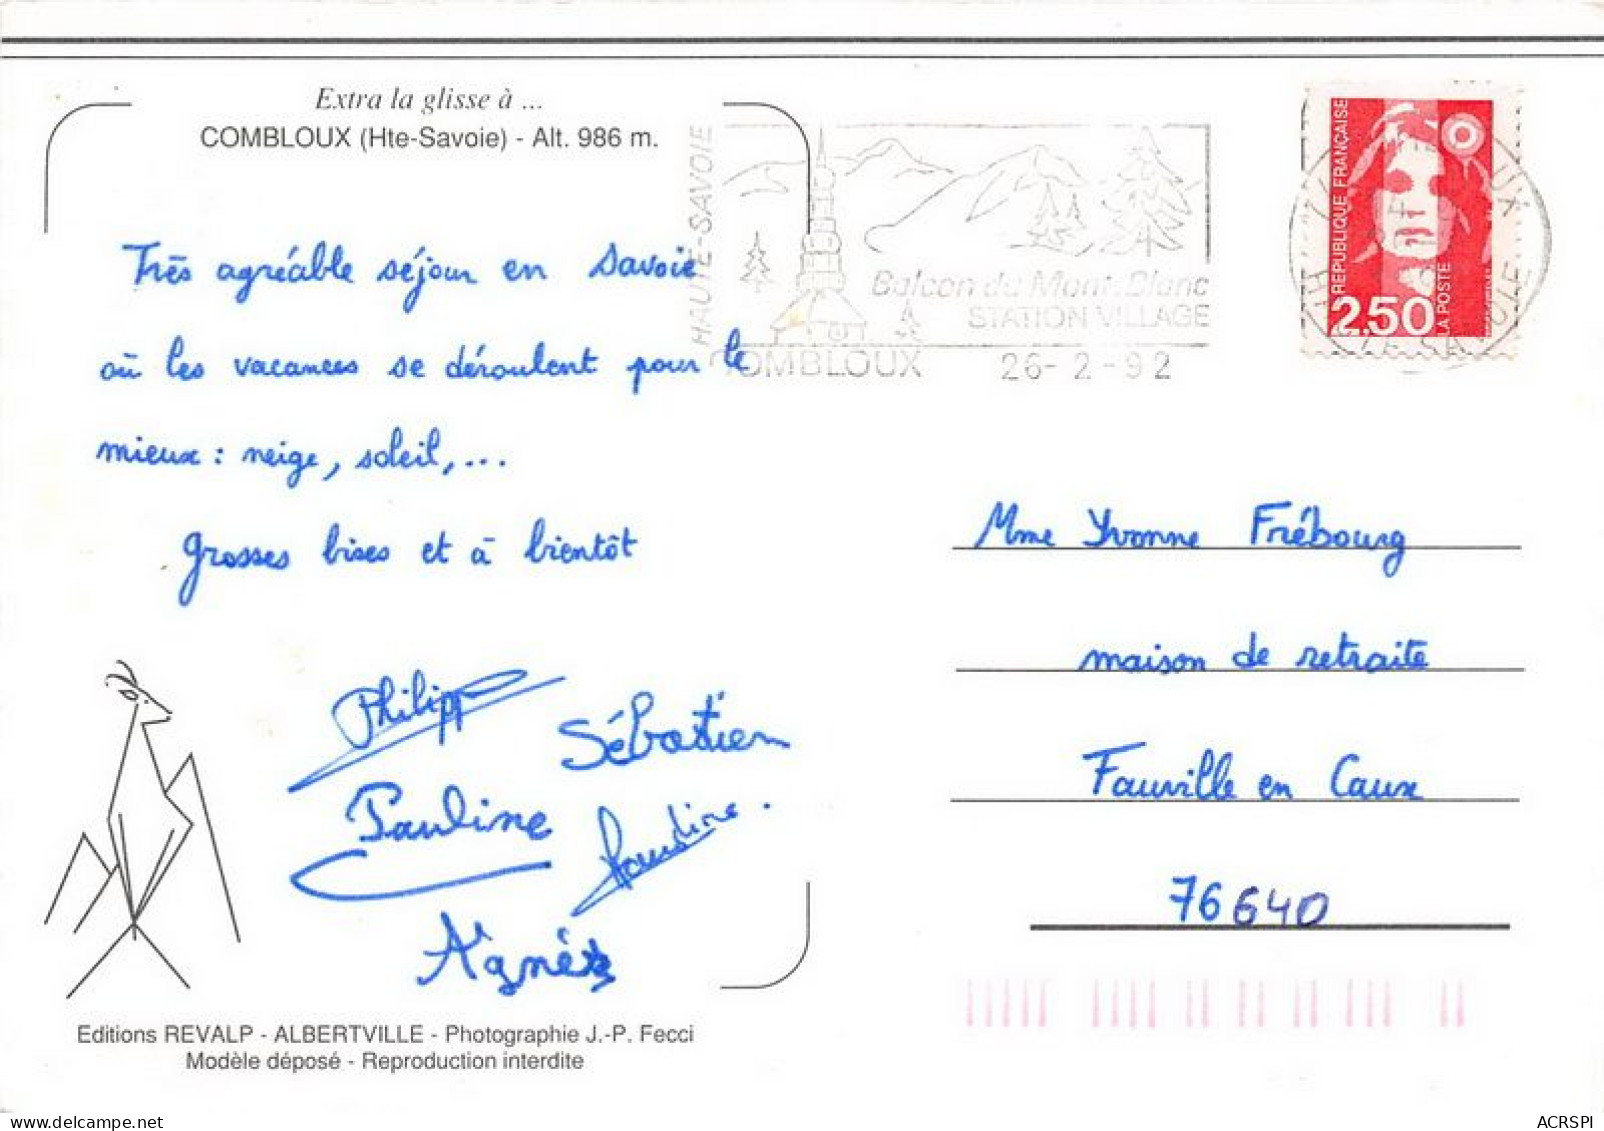 Extra la glisse à ...
COMBLOUX (Hte-Savoie) - Alt. 986 m.
Très agréable séjour en Savoie
où les vacances se déroulent pour le
mieux : neige, soleil, ...
Grosses bises et à bientôt
Philipp
Sébastien
Pauline
Agnès
Editions REVALP - ALBERTVILLE - Photographie J.-P. Fecci
Modèle déposé - Reproduction interdite
HAUTE-SAVOIE
Balcon du Mont-Blanc
STATION VILLAGE
COMBLOUX 26-2-92
RÉPUBLIQUE FRANÇAISE
2,50
LA POSTE
Mme Yvonne Frébourg
maison de retraite
Fauville en Caux
76640
ACRSPI